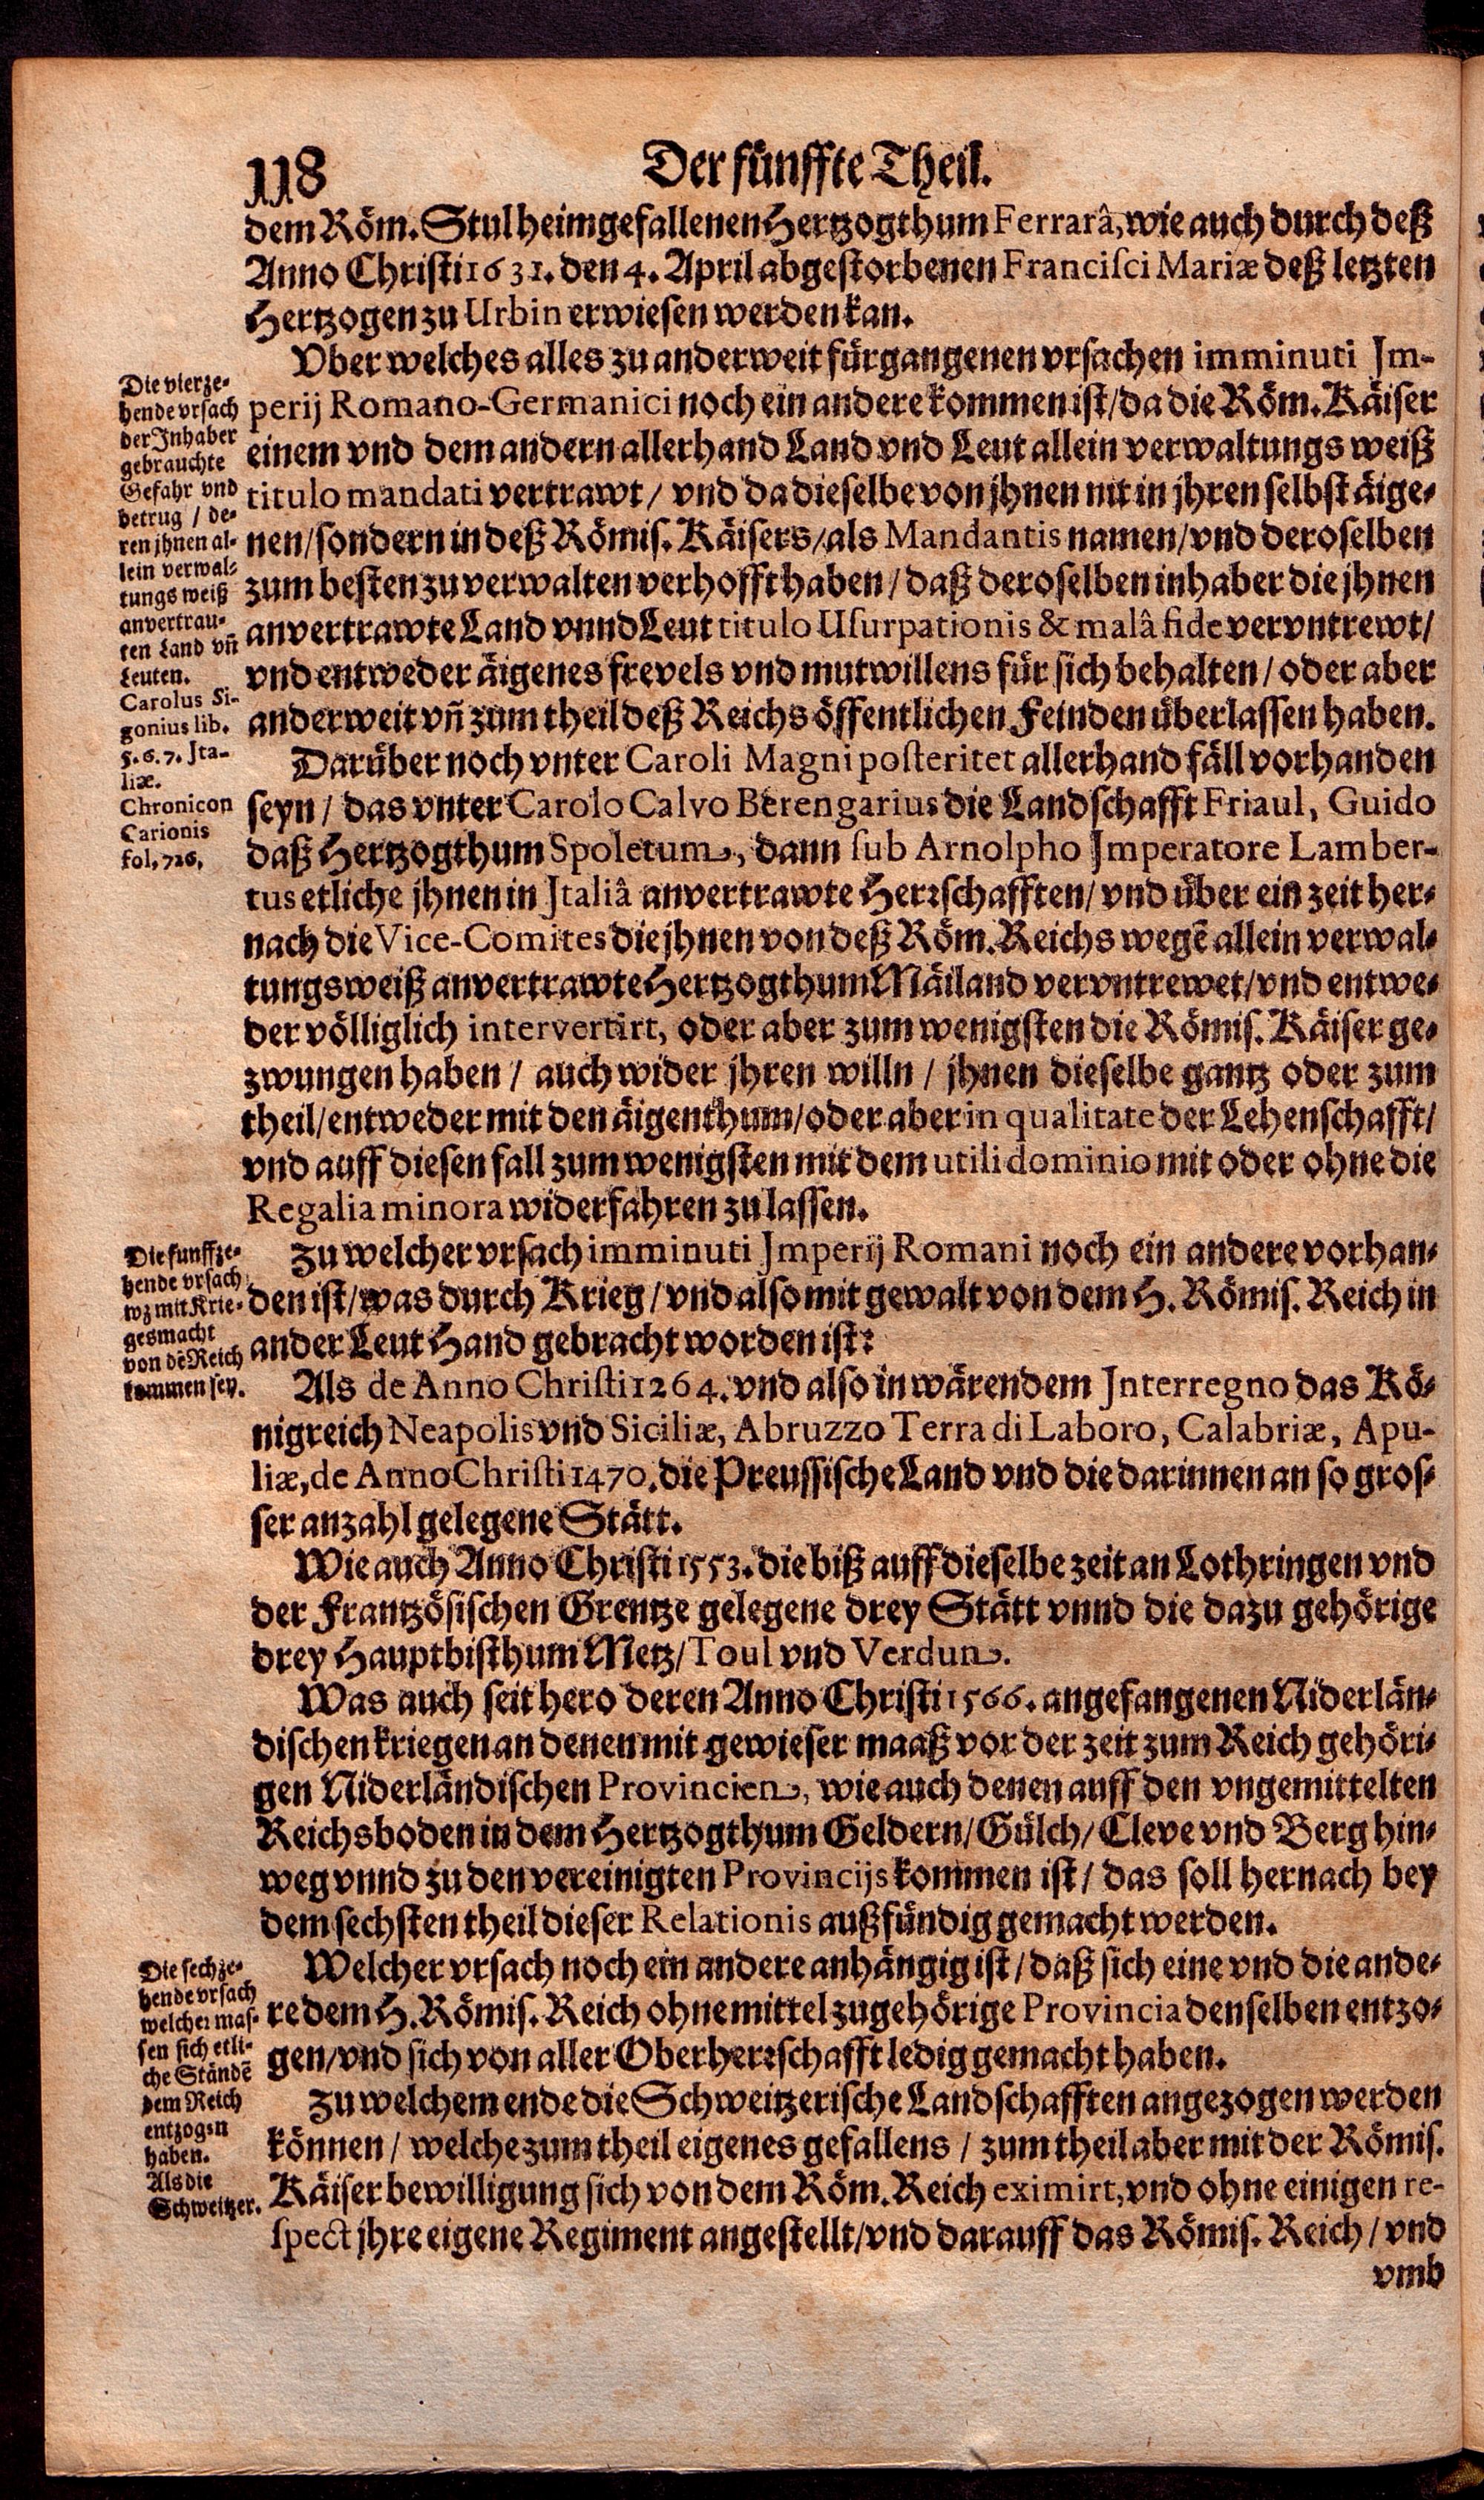 118
Der fünffte Theil.
dem Röm. Stul heimgefallenen Hertzogthum Ferrarâ, wie auch durch deß
Anno Christi 1631. den 4. April abgestorbenen Francisci Mariæ deß letzten
Hertzogen zu Urbin erwiesen werden kan.
Vber welches alles zu anderweit fürgangenen vrsachen imminuti Im-
perij Romano-Germanici noch ein andere kommen ist/ da die Röm. Käiser
einem vnd dem andern allerhand Land vnd Leut allein verwaltungs weiß
titulo mandati vertrawt/ vnd da dieselbe von jhnen nit in jhren selbst äige-
nen/ sondern in deß Römis. Käisers/ als Mandantis namen/ vnd deroselben
zum besten zu verwalten verhofft haben/ daß deroselben inhaber die jhnen
anvertrawte Land vnnd Leut titulo Usurpationis & malâ fide vervntrewt/
vnd entweder äigenes frevels vnd mutwillens für sich behalten/ oder aber
anderweit vñ zum theil deß Reichs öffentlichen Feinden überlassen haben.
Die vierze-
hende vrsach
der Inhaber
gebrauchte
Gefahr vnd
betrug / de-
ren jhnen al-
lein verwal-
tungs weiß
anvertrau-
ten Land vñ
Leuten.
Carolus Si-
gonius lib.
5. 6. 7. Ita-
liæ.
Chronicon
Carionis
fol. 726.
Darüber noch vnter Caroli Magni posteritet allerhand fäll vorhanden
seyn/ das vnter Carolo Calvo Berengarius die Landschafft Friaul, Guido
daß Hertzogthum Spoletum, dann sub Arnolpho Imperatore Lamber-
tus etliche jhnen in Italiâ anvertrawte Herrschafften/ vnd über ein zeit her-
nach die Vice-Comites die jhnen von deß Röm. Reichs wegẽ allein verwal-
tungsweiß anvertrawte Hertzogthum Mäiland vervntrewet/ vnd entwe-
der völliglich intervertirt, oder aber zum wenigsten die Römis. Käiser ge-
zwungen haben / auch wider jhren willn / jhnen dieselbe gantz oder zum
theil/ entweder mit den äigenthum/ oder aber in qualitate der Lehenschafft/
vnd auff diesen fall zum wenigsten mit dem utili dominio mit oder ohne die
Regalia minora widerfahren zu lassen.
Zu welcher vrsach imminuti Imperij Romani noch ein andere vorhan-
den ist/ was durch Krieg / vnd also mit gewalt von dem H. Römis. Reich in
ander Leut Hand gebracht worden ist:
Die funffze-
hende vrsach
wz mit Krie-
gesmacht
von dẽ Reich
kommen sey.
Als de Anno Christi 1264. vnd also in wärendem Interregno das Kö-
nigreich Neapolis vnd Siciliæ, Abruzzo Terra di Laboro, Calabriæ, Apu-
liæ, de Anno Christi 1470. die Preussische Land vnd die darinnen an so gros-
ser anzahl gelegene Stätt.
Wie auch Anno Christi 1553. die biß auff dieselbe zeit an Lothringen vnd
der Frantzösischen Grentze gelegene drey Stätt vnnd die dazu gehörige
drey Hauptbisthum Metz/ Toul vnd Verdun.
Was auch seit hero deren Anno Christi 1566. angefangenen Niderlän-
dischen kriegen an denen mit gewieser maaß vor der zeit zum Reich gehöri-
gen Niderländischen Provincien, wie auch denen auff den vngemittelten
Reichsboden in dem Hertzogthum Geldern/ Gülch/ Cleve vnd Berg hin-
weg vnnd zu den vereinigten Provincijs kommen ist/ das soll hernach bey
dem sechsten theil dieser Relationis außfündig gemacht werden.
Welcher vrsach noch ein andere anhängig ist/ daß sich eine vnd die ande-
re dem H. Römis. Reich ohne mittel zugehörige Provincia denselben entzo-
gen/ vnd sich von aller Oberherrschafft ledig gemacht haben.
Die sechze-
hende vrsach
welcher mas-
sen sich etli-
che Ständẽ
dem Reich
entzogen
haben.
Als die
Schweitzer.
Zu welchem ende die Schweitzerische Landschafften angezogen werden
können / welche zum theil eigenes gefallens / zum theil aber mit der Römis.
Käiser bewilligung sich von dem Röm. Reich eximirt, vnd ohne einigen re-
spect jhre eigene Regiment angestellt/ vnd darauff das Römis. Reich / vnd
vmb